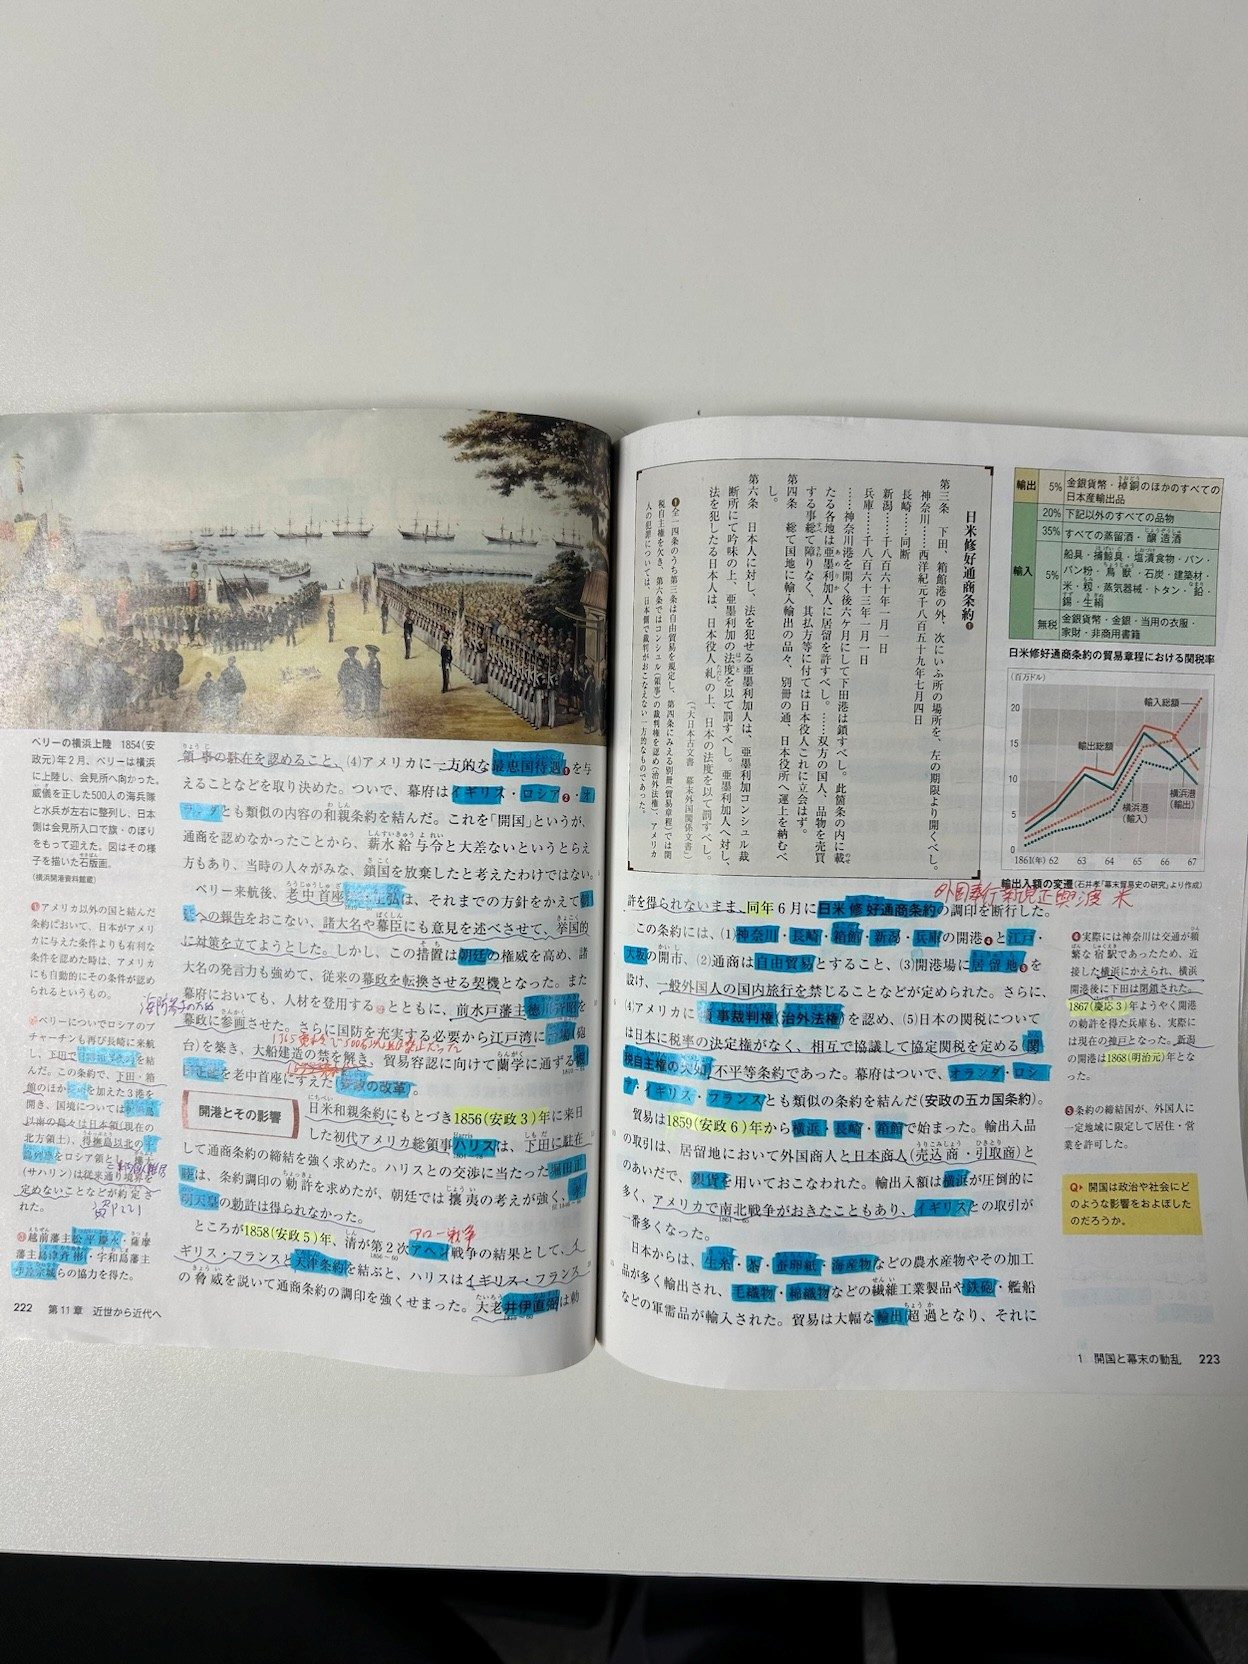 ペリーの横浜上陸 1854(安
政元)年2月、ペリーは横浜
に上陸し、会見所へ向かった。
威儀を正した500人の海兵隊
と水兵が左右に整列し、日本
側は会見所入口で旗・のぼり
をもって迎えた。図はその様
子を描いた石版画。
(横浜開港資料館蔵)
❶アメリカ以外の国と結んだ
条約において、日本がアメリ
カに与えた条件よりも有利な
条件を認めた時は、アメリカ
にも自動的にその条件が認め
られるというもの。
ペリーについでロシアのプ
チャーチンも再び長崎に来航
し、下田で
を結
んだ。この条約で、下田・箱
館のほか
を加えた3港を
開き、国境については
以南の島々は日本領(現在の
北方領土)、得撫島以北の
をロシア領とし、樺太
(サハリン)は従来通り境界を
定めないことなどが約定さ
れた。
❸越前藩主松平慶永・薩摩
藩主島津斉彬・宇和島藩主
らの協力を得た。
222 第11章 近世から近代へ
領事の駐在を認めること、(4)アメリカに一方的な最恵国待遇❶を与
えることなどを取り決めた。ついで、幕府はイギリス・ロシア❷・オ
ランダとも類似の内容の和親条約を結んだ。これを「開国」というが、
通商を認めなかったことから、薪水給与令と大差ないというとらえ
方もあり、当時の人々がみな、鎖国を放棄したと考えたわけではない。
ペリー来航後、老中首座阿部正弘は、それまでの方針をかえて朝
廷への報告をおこない、諸大名や幕臣にも意見を述べさせて、挙国的
に対策を立てようとした。しかし、この措置は朝廷の権威を高め、諸
大名の発言力も強めて、従来の幕政を転換させる契機となった。また
幕府においても、人材を登用する❸とともに、前水戸藩主徳川斉昭を
幕政に参画させた。さらに国防を充実する必要から江戸湾に
砲
台)を築き、大船建造の禁を解き、貿易容認に向けて蘭学に通ずる堀
田正睦を老中首座にすえた(安政の改革)。
アロー戦争
開港とその影響
日米和親条約にもとづき1856(安政3)年に来日
した初代アメリカ総領事ハリスは、下田に駐在
して通商条約の締結を強く求めた。ハリスとの交渉に当たった堀田正
睦は、条約調印の勅許を求めたが、朝廷では攘夷の考えが強く、孝
明天皇の勅許は得られなかった。
ところが1858(安政5)年、清が第2次アヘン戦争の結果として、イ
ギリス・フランスと天津条約を結ぶと、ハリスはイギリス・フランス
の脅威を説いて通商条約の調印を強くせまった。大老井伊直弼は勅
日米修好通商条約❶
第三条 下田、箱館港の外、次にいふ所の場所を、左の期限より開くべし。
神奈川……西洋紀元千八百五十九年七月四日
長崎……同断
新潟……千八百六十年一月一日
兵庫……千八百六十三年一月一日
……神奈川港を開く後六ケ月にして下田港は鎖すべし。此箇条の内に載
たる各地は亜墨利加人に居留を許すべし。……双方の国人、品物を売買
する事総て障りなく、其払方等に付ては日本役人これに立会はず。
第四条 総て国地に輸入輸出の品々、別冊の通、日本役所へ運上を納むべ
し。
第六条 日本人に対し、法を犯せる亜墨利加人は、亜墨利加コンシュル裁
断所にて吟味の上、亜墨利加の法度を以て罰すべし。亜墨利加人へ対し、
法を犯したる日本人は、日本役人糺の上、日本の法度を以て罰すべし。
(『大日本古文書 幕末外国関係文書』)
❶全一四条のうち第三条は自由貿易を規定し、第四条にみえる別冊(貿易章程)では関
税自主権を欠き、第六条ではコンシュル(領事)の裁判権を認め(治外法権)、アメリカ
人の犯罪については、日本側で裁判がおこなえない一方的なものであった。
輸出 5% 金銀貨幣・棹銅のほかのすべての
日本産輸出品
輸入 20% 下記以外のすべての品物
35% すべての蒸留酒・醸造酒
5% 船具・捕鯨具・塩漬食物・パン・
パン粉・鳥獣・石炭・建築材・
米・籾・蒸気器械・トタン・鉛・
錫・生絹
無税 金銀貨幣・金銀・当用の衣服・
家財・非商用書籍
日米修好通商条約の貿易章程における関税率
(百万ドル)
20
15
10
5
0
輸入総額
輸出総額
横浜港
(輸入)
横浜港
(輸出)
1861(年) 62 63 64 65 66 67
輸出入額の変遷(石井孝『幕末貿易史の研究』より作成)
許を得られないまま、同年6月に日米修好通商条約の調印を断行した。
この条約には、(1)神奈川・長崎・箱館・新潟・兵庫の開港❹と江戸・
大坂の開市、(2)通商は自由貿易とすること、(3)開港場に居留地❺を
設け、一般外国人の国内旅行を禁じることなどが定められた。さらに、
(4)アメリカに領事裁判権(治外法権)を認め、(5)日本の関税について
は日本に税率の決定権がなく、相互で協議して協定関税を定める(関
税自主権の欠如)不平等条約であった。幕府はついで、オランダ・ロシ
ア・イギリス・フランスとも類似の条約を結んだ(安政の五カ国条約)。
貿易は1859(安政6)年から横浜・長崎・箱館で始まった。輸出入品
の取引は、居留地において外国商人と日本商人(売込商・引取商)と
のあいだで、銀貨を用いておこなわれた。輸出入額は横浜が圧倒的に
多く、アメリカで南北戦争がおきたこともあり、イギリスとの取引が
一番多くなった。
日本からは、生糸・茶・蚕卵紙・海産物などの農水産物やその加工
品が多く輸出され、毛織物・綿織物などの繊維工業製品や鉄砲・艦船
などの軍需品が輸入された。貿易は大幅な輸出超過となり、それに
❹実際には神奈川は交通が頻
繁な宿駅であったため、近
接した横浜にかえられ、横浜
開港後に下田は閉鎖された。
1867(慶応3)年ようやく開港
の勅許を得た兵庫も、実際に
は現在の神戸となり、新潟
の開港は1868(明治元)年とな
った。
❺条約の締結国が、外国人に
一定地域に限定して居住・営
業を許可した。
Q▶ 開国は政治や社会にど
のような影響をおよぼした
のだろうか。
1 開国と幕末の動乱 223